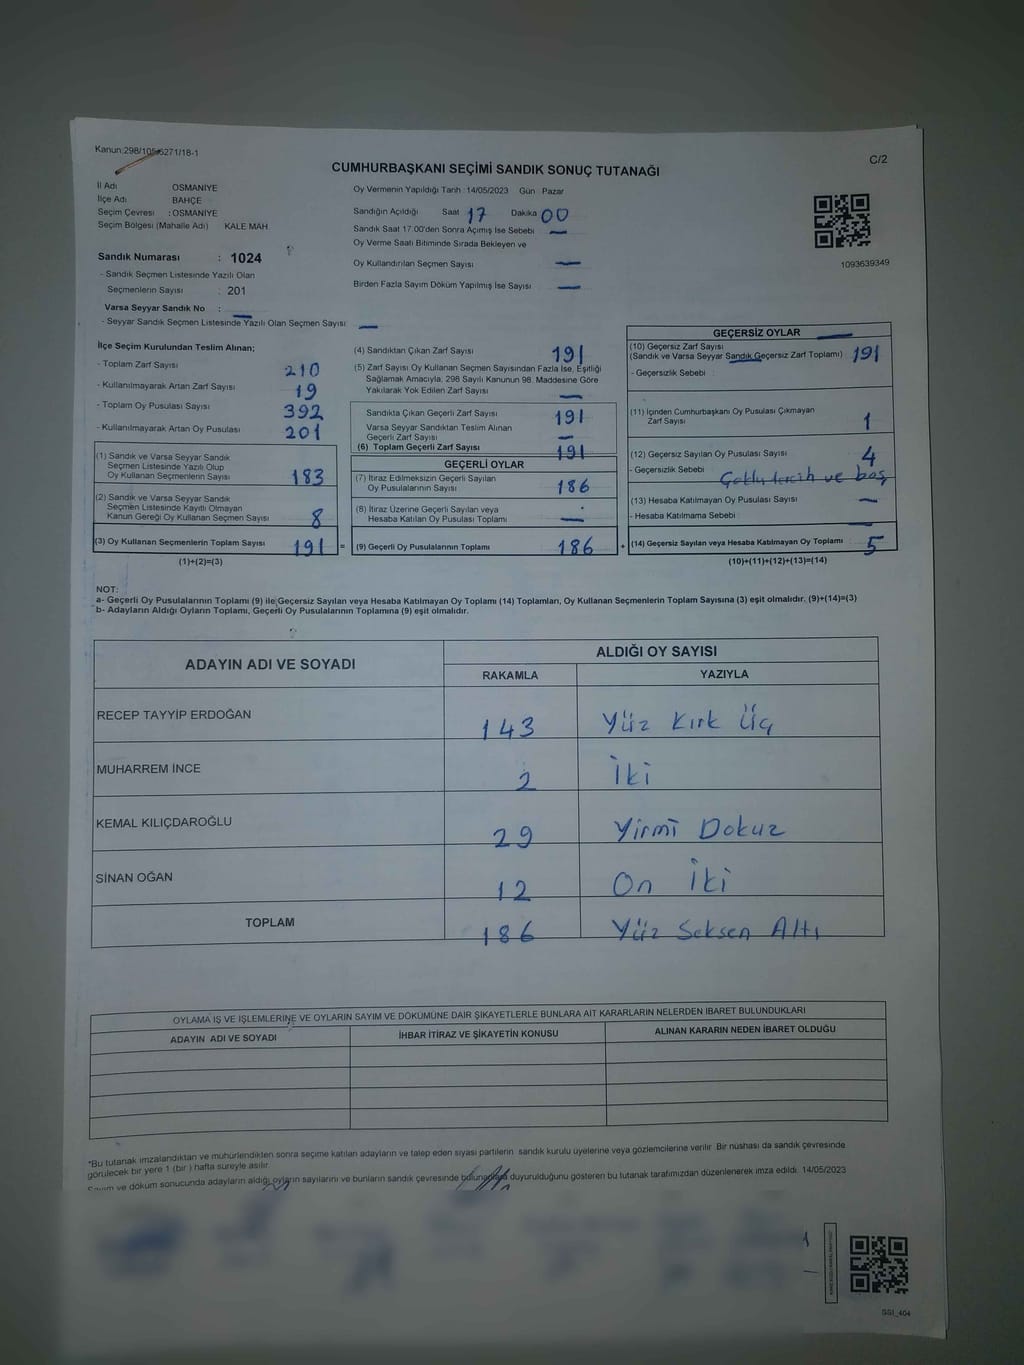 Kanun:298/105-6271/18-1
C/2
CUMHURBAŞKANI SEÇİMİ SANDIK SONUÇ TUTANAĞI
İl Adı OSMANİYE
İlçe Adı BAHÇE
Seçim Çevresi : OSMANİYE
Seçim Bölgesi (Mahalle Adı) KALE MAH
Oy Vermenin Yapıldığı Tarih : 14/05/2023 Gün Pazar
Sandığın Açıldığı Saat 17 Dakika 00
Sandık Saat 17.00'den Sonra Açılmış İse Sebebi —
Oy Verme Saati Bitiminde Sırada Bekleyen ve
Oy Kullandırılan Seçmen Sayısı —
Birden Fazla Sayım Döküm Yapılmış İse Sayısı —
1093639349
Sandık Numarası : 1024
- Sandık Seçmen Listesinde Yazılı Olan
Seçmenlerin Sayısı : 201
Varsa Seyyar Sandık No : —
- Seyyar Sandık Seçmen Listesinde Yazılı Olan Seçmen Sayısı: —
İlçe Seçim Kurulundan Teslim Alınan;
- Toplam Zarf Sayısı 210
- Kullanılmayarak Artan Zarf Sayısı 19
- Toplam Oy Pusulası Sayısı 392
- Kullanılmayarak Artan Oy Pusulası 201
(1) Sandık ve Varsa Seyyar Sandık
Seçmen Listesinde Yazılı Olup
Oy Kullanan Seçmenlerin Sayısı 183
(2) Sandık ve Varsa Seyyar Sandık
Seçmen Listesinde Kayıtlı Olmayan
Kanun Gereği Oy Kullanan Seçmen Sayısı 8
(3) Oy Kullanan Seçmenlerin Toplam Sayısı 191 =
(1)+(2)=(3)
(4) Sandıktan Çıkan Zarf Sayısı 191
(5) Zarf Sayısı Oy Kullanan Seçmen Sayısından Fazla İse, Eşitliği
Sağlamak Amacıyla; 298 Sayılı Kanunun 98. Maddesine Göre
Yakılarak Yok Edilen Zarf Sayısı —
Sandıkta Çıkan Geçerli Zarf Sayısı 191
Varsa Seyyar Sandıktan Teslim Alınan
Geçerli Zarf Sayısı —
(6) Toplam Geçerli Zarf Sayısı 191
GEÇERLİ OYLAR
(7) İtiraz Edilmeksizin Geçerli Sayılan
Oy Pusulalarının Sayısı 186
(8) İtiraz Üzerine Geçerli Sayılan veya
Hesaba Katılan Oy Pusulası Toplamı —
(9) Geçerli Oy Pusulalarının Toplamı 186 +
GEÇERSİZ OYLAR
(10) Geçersiz Zarf Sayısı —
(Sandık ve Varsa Seyyar Sandık Geçersiz Zarf Toplamı) 191
- Geçersizlik Sebebi :
(11) İçinden Cumhurbaşkanı Oy Pusulası Çıkmayan
Zarf Sayısı 1
(12) Geçersiz Sayılan Oy Pusulası Sayısı 4
- Geçersizlik Sebebi Çoklu tercih ve boş
(13) Hesaba Katılmayan Oy Pusulası Sayısı —
- Hesaba Katılmama Sebebi : —
(14) Geçersiz Sayılan veya Hesaba Katılmayan Oy Toplamı : 5
(10)+(11)+(12)+(13)=(14)
NOT:
a- Geçerli Oy Pusulalarının Toplamı (9) ile Geçersiz Sayılan veya Hesaba Katılmayan Oy Toplamı (14) Toplamları, Oy Kullanan Seçmenlerin Toplam Sayısına (3) eşit olmalıdır. (9)+(14)=(3)
b- Adayların Aldığı Oyların Toplamı, Geçerli Oy Pusulalarının Toplamına (9) eşit olmalıdır.
ADAYIN ADI VE SOYADI ALDIĞI OY SAYISI
RAKAMLA YAZIYLA
RECEP TAYYİP ERDOĞAN 143 Yüz Kırk Üç
MUHARREM İNCE 2 İki
KEMAL KILIÇDAROĞLU 29 Yirmi Dokuz
SİNAN OĞAN 12 On İki
TOPLAM 186 Yüz Seksen Altı
OYLAMA İŞ VE İŞLEMLERİNE VE OYLARIN SAYIM VE DÖKÜMÜNE DAİR ŞİKAYETLERLE BUNLARA AİT KARARLARIN NELERDEN İBARET BULUNDUKLARI
ADAYIN ADI VE SOYADI İHBAR İTİRAZ VE ŞİKAYETİN KONUSU ALINAN KARARIN NEDEN İBARET OLDUĞU
*Bu tutanak imzalandıktan ve mühürlendikten sonra seçime katılan adayların ve talep eden siyasi partilerin sandık kurulu üyelerine veya gözlemcilerine verilir. Bir nüshası da sandık çevresinde
görülecek bir yere 1 (bir ) hafta süreyle asılır.
Sayım ve döküm sonucunda adayların aldığı oyların sayılarını ve bunların sandık çevresinde duyurulduğunu gösteren bu tutanak tarafımızdan düzenlenerek imza edildi. 14/05/2023
SSI_404